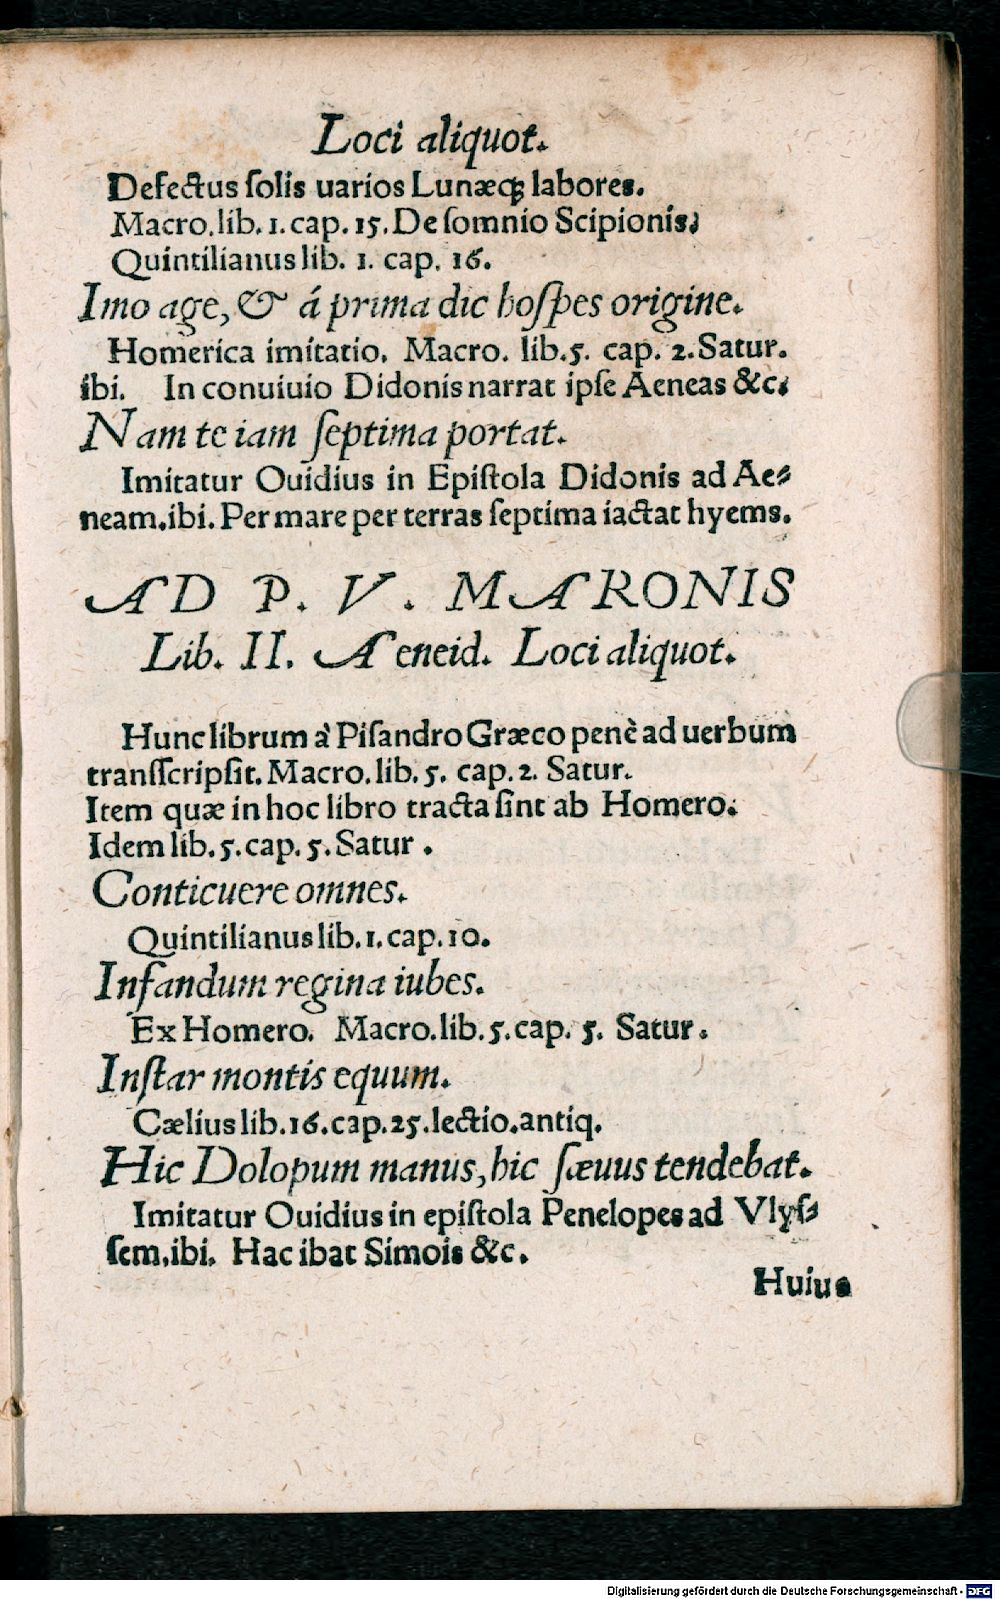 Loci aliquot.
Defectus ſolis uarios Lunæqꝫ labores.
Macro.lib.1.cap.15.De ſomnio Scipionis.
Quintilianus lib. 1. cap. 16.
Imo age, & á prima dic hoſpes origine.
Homerica imitatio. Macro. lib.5. cap. 2.Satur.
ibi. In conuiuio Didonis narrat ipſe Aeneas &c.
Nam te iam ſeptima portat.
Imitatur Ouidius in Epiſtola Didonis ad Ae⸗
neam.ibi.Per mare per terras ſeptima iactat hyems.
AD P. V. MARONIS
Lib. II. Aeneid. Loci aliquot.
Hunc librum à Piſandro Græco penè ad uerbum
tranſſcripſit. Macro.lib.5. cap.2. Satur.
Item quæ in hoc libro tracta ſint ab Homero.
Idem lib.5.cap.5.Satur.
Conticuere omnes.
Quintilianus lib.1.cap.10.
Infandum regina iubes.
Ex Homero. Macro.lib.5.cap. 5. Satur.
Inſtar montis equum.
Cælius lib.16.cap.25.lectio.antiq.
Hic Dolopum manus, hic ſæuus tendebat.
Imitatur Ouidius in epiſtola Penelopes ad Vlyſ⸗
ſem.ibi. Hac ibat Simois &c.
Huius
Digitalisierung gefördert durch die Deutsche Forschungsgemeinschaft - DFG